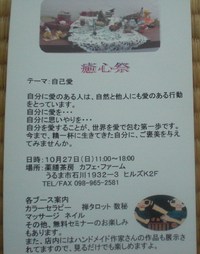 癒心祭
テーマ:自己愛
自分に愛のある人は、自然と他人にも愛のある行動
をとっています。
自分に愛を・・・
自分に思いやりを・・・
自分を愛することが、世界を愛で包む第一歩です。
今まで、精一杯に生きてきた自分に、ご褒美を与え
てみませんか。
日時:10月27日(日)11:00~18:00
場所:薬膳茶房 カフェ・ファーム
うるま市石川1932-3 ヒルズK2F
TEL/FAX 098-965-2581
各ブース案内
カラーセラピー 禅タロット 数秘
マッサージ ネイル
その他、無料セミナーのお楽しみ
もあります。
また、店内にはハンドメイド作家さんの作品も展示さ
れてますので、見るだけでも楽しめますよ。